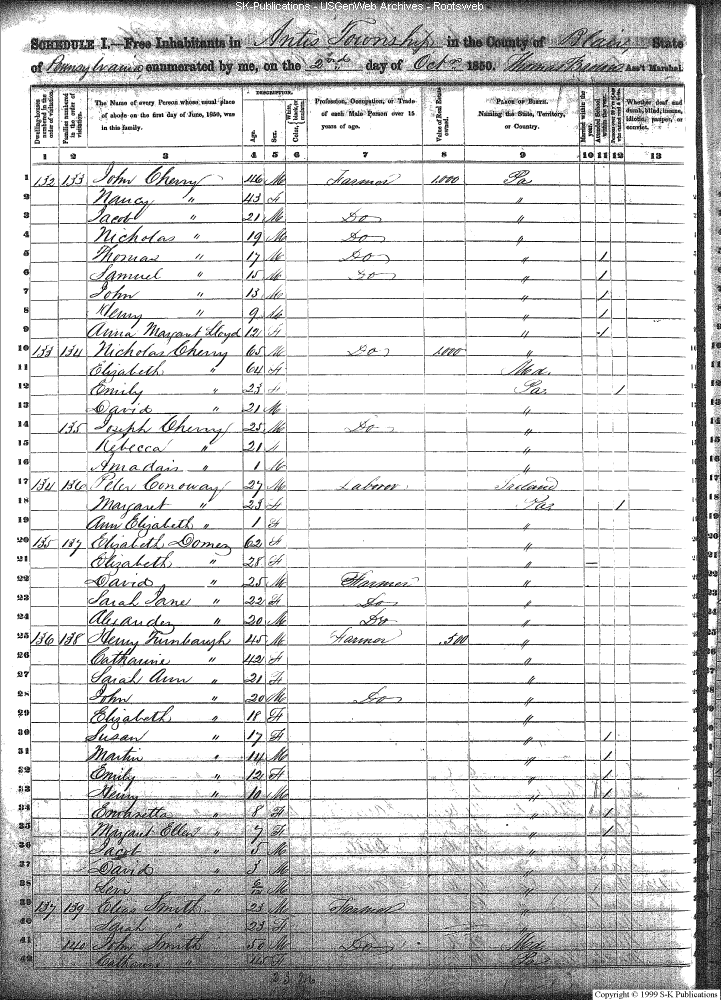 SK-Publications - USGenWeb Archives - Rootsweb
SCHEDULE I.—Free Inhabitants in Antis Township in the County of Blair State
of Pennsylvania enumerated by me, on the 2nd day of Octr 1850. Ass't Marshal.
Dwelling-houses numbered in the order of visitation.
Families numbered in the order of visitation.
The Name of every Person whose usual place of abode on the first day of June, 1850, was in this family.
DESCRIPTION.
Age.
Sex.
Color, White, black, or mulatto.
Profession, Occupation, or Trade of each Male Person over 15 years of age.
Value of Real Estate owned.
PLACE OF BIRTH. Naming the State, Territory, or Country.
Married within the year.
Attended School within the year.
Whether deaf and dumb, blind, insane, idiotic, pauper, or convict.
1 2 3 4 5 6 7 8 9 10 11 12 13
1 132 133 John Cherry 46 M Farmer 1.000 Pa
2 Nancy " 43 F "
3 Jacob " 21 M Do "
4 Nicholas " 19 M Do "
5 Thomas " 17 M Do " 1
6 Samuel " 15 M Do " 1
7 John " 13 M " 1
8 Henry " 9 M " 1
9 Anna Margaret Lloyd 12 F " 1
10 133 134 Nicholas Cherry 65 M Do 1.000 "
11 Elizabeth " 64 F Md.
12 Emily " 23 F Pa 1
13 David " 21 M "
14 135 Joseph Cherry 25 M Do "
15 Rebecca " 21 F "
16 " 1 M "
17 134 136 Peter Conoway 27 M Laborer Ireland
18 Margaret " 23 F Pa 1
19 Ann Elizabeth " 1 F "
20 135 137 Elizabeth Domer 62 F "
21 Elizabeth " 28 F " —
22 David " 25 M Farmer "
23 Sarah Jane " 22 F Do "
24 Alexander " 20 M Do "
25 136 138 Henry Turnbaugh 45 M Farmer .500 "
26 Catharine " 42 F "
27 Sarah Ann " 21 F "
28 John " 20 M Do "
29 Elizabeth " 18 F "
30 Susan " 17 F " 1
31 Martin " 14 M " 1
32 Emily " 12 F " 1
33 Henry " 10 M " 1
34 " 8 F " 1
35 Margaret Ellen " 7 F " 1
36 Jacob " 5 M "
37 David " 3 M "
38 Levi " M "
39 137 139 Elias Smith 23 M Farmer "
40 Sarah " 23 F "
41 140 John Smith 50 M Do Md
42 Catharine " 45 F Pa
Copyright © 1999 S-K Publications